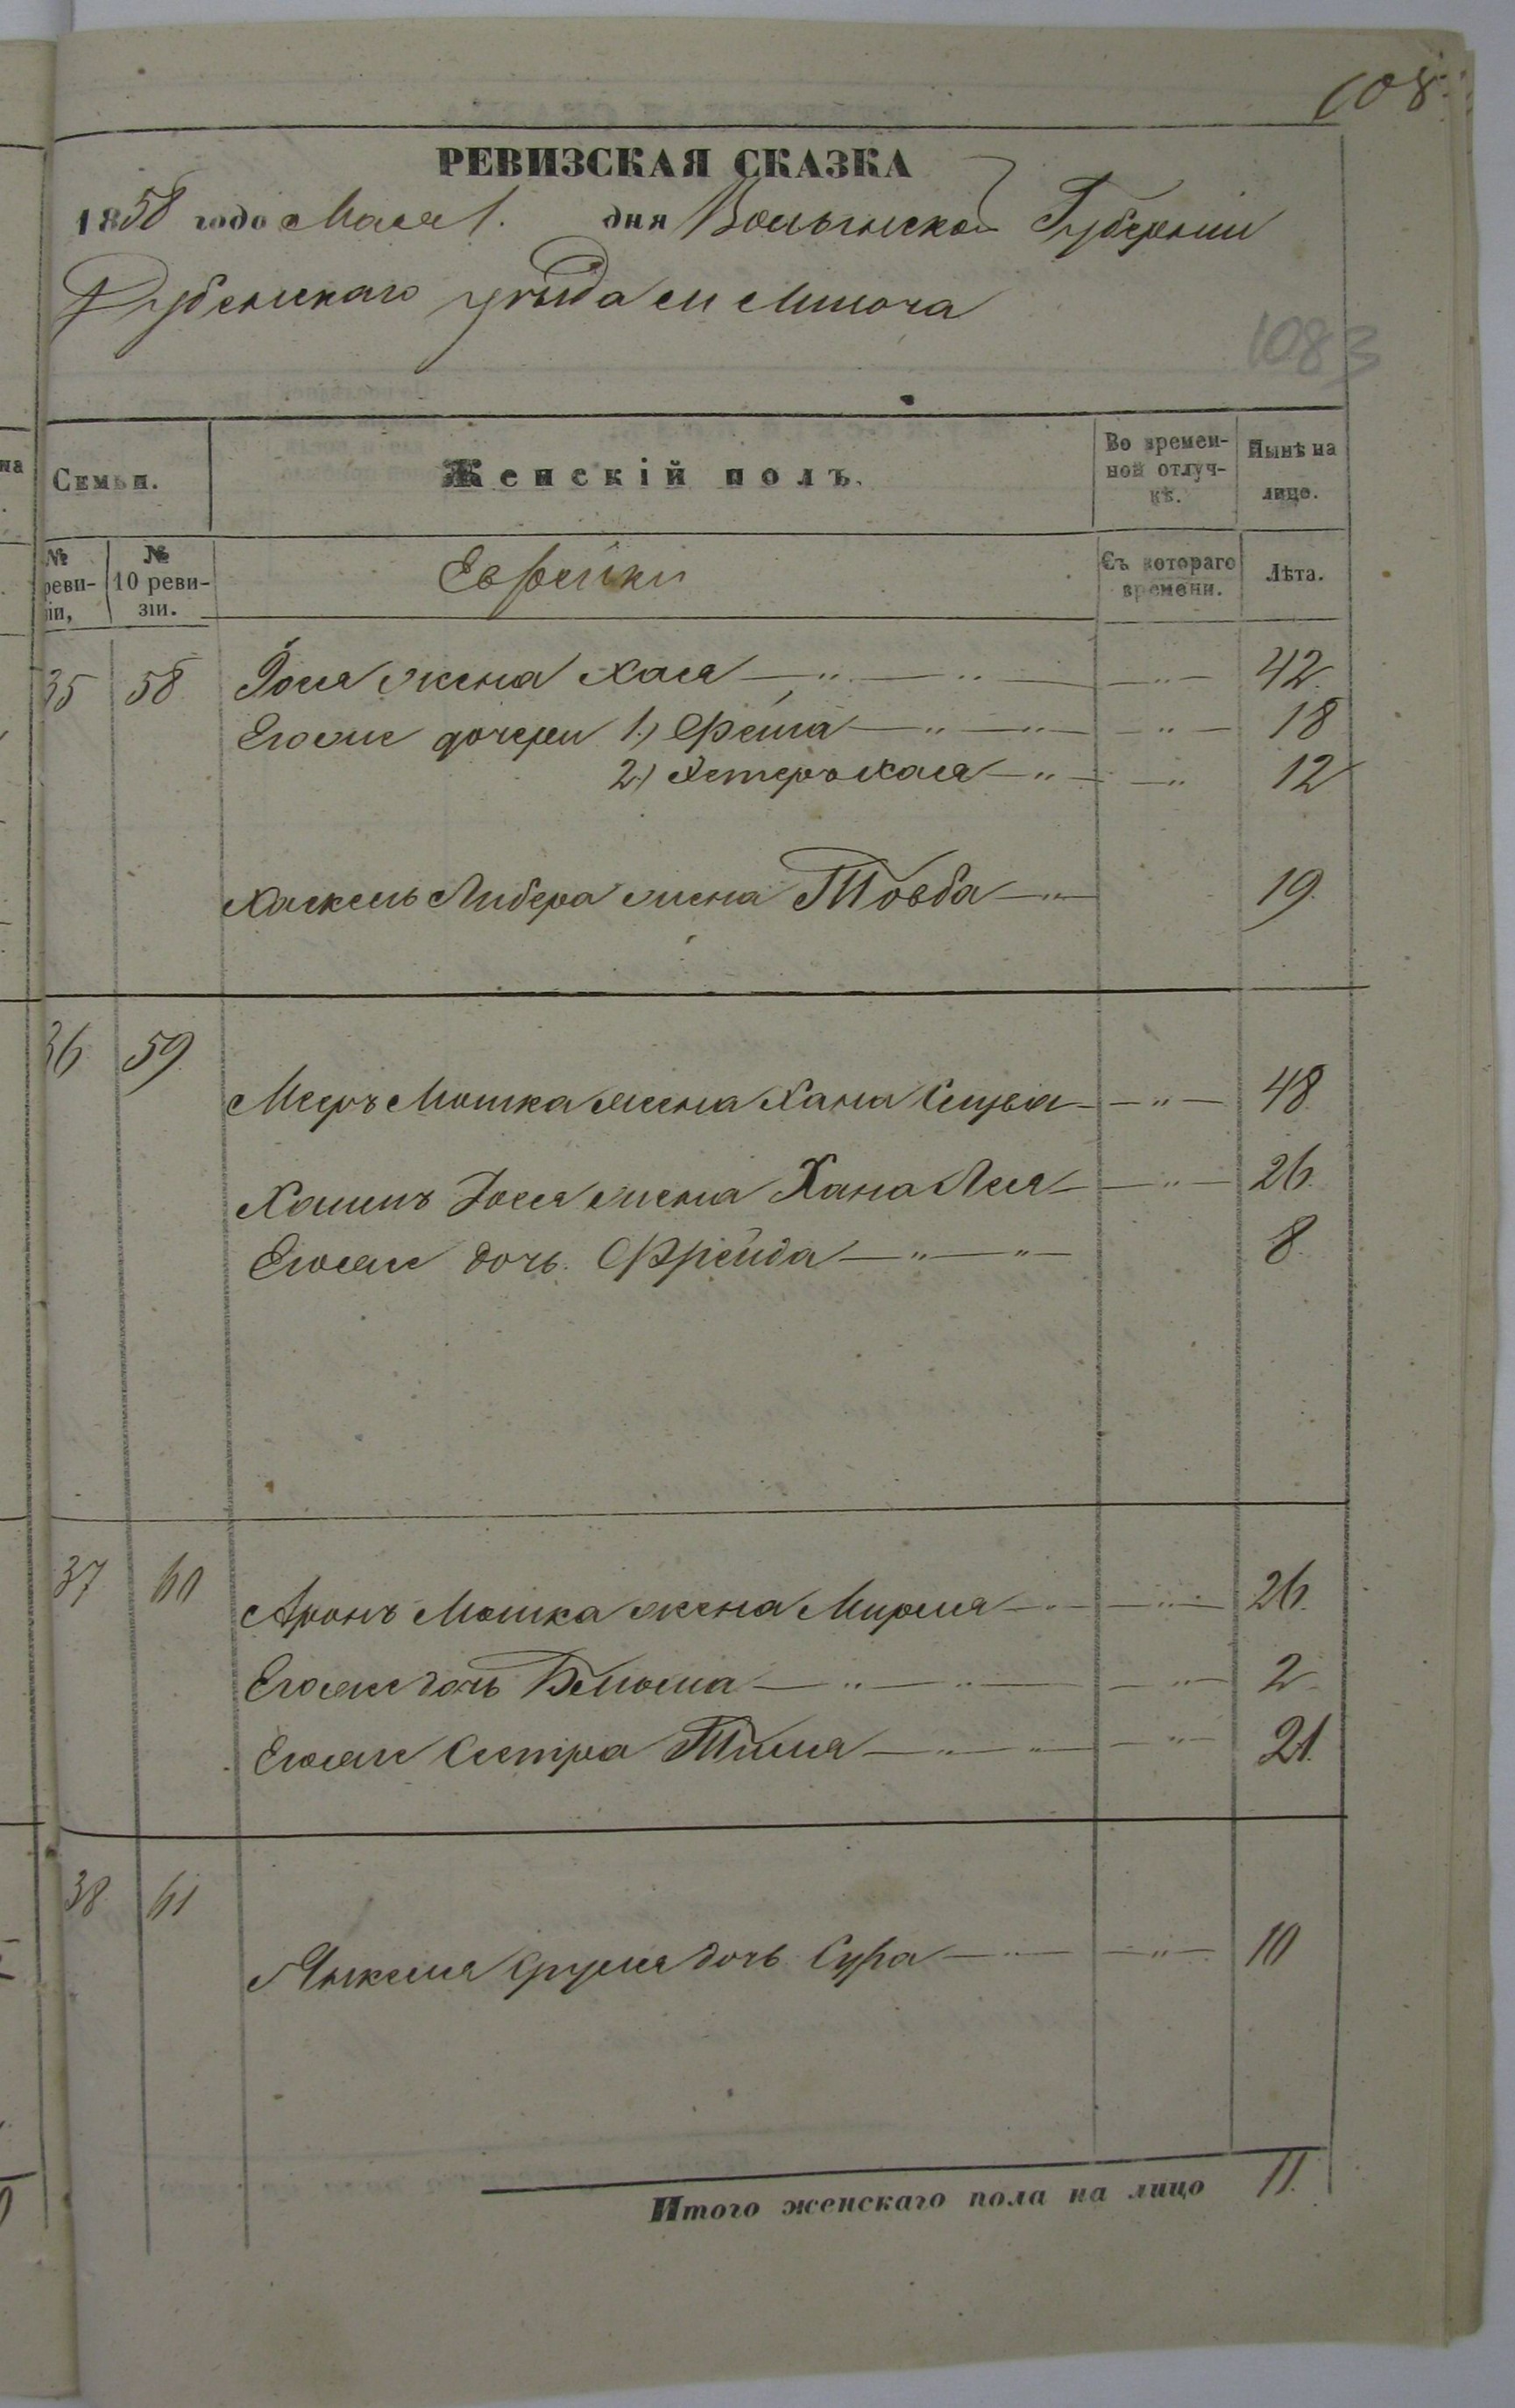 108.
РЕВИЗСКАЯ СКАЗКА
1858 года Мая 1. дня Волынской Губерніи
Дубенскаго уѣзда м Млинова
1083
на
Семьи.
Женскій полъ.
Во времен-
ной отлуч-
кѣ.
Нынѣ на
лицо.
№
реви-
зіи,
№
10 реви-
зіи.
Еврейки
Съ котораго
времени.
Лѣта.
35 58 Іося жена Хая 42.
Егоже дочери 1.) Фейга 18
2.) Хая 12
Либера жена Товба 19.
36 59
Мееръ Мошка жена Хана Сирка 48
Хаимъ Іося жена Хана Лея 26.
Егоже дочь. Фрейда 8.
37 60
Аронъ Мошка жена Мирля 26.
Егоже дочь 2
Егоже Сестра 21.
38 61
Сруля дочь Сура 10
Итого женскаго пола на лицо 11.